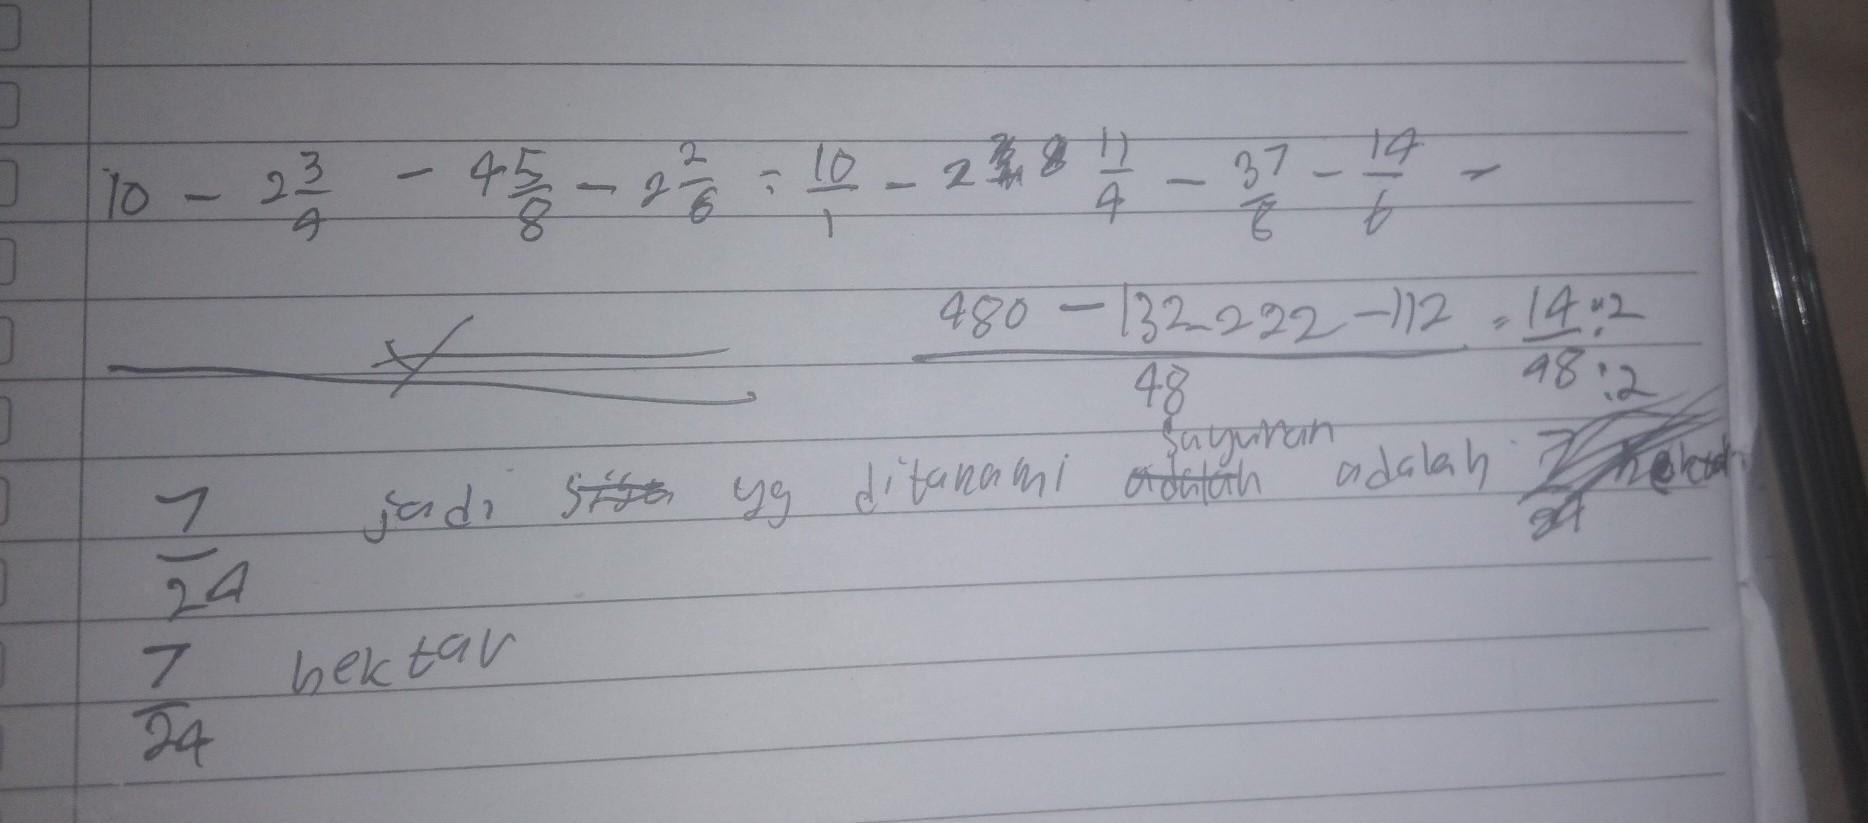 10 - 2 3/4 - 4 5/8 - 2 2/6 = 10/1 - 2 11/4 - 37/8 - 14/6 -
480 - 132 - 222 - 112 / 48 = 14 : 2 / 48 : 2
7/24 jadi yg ditanami sayuran adalah
7/24 hektar